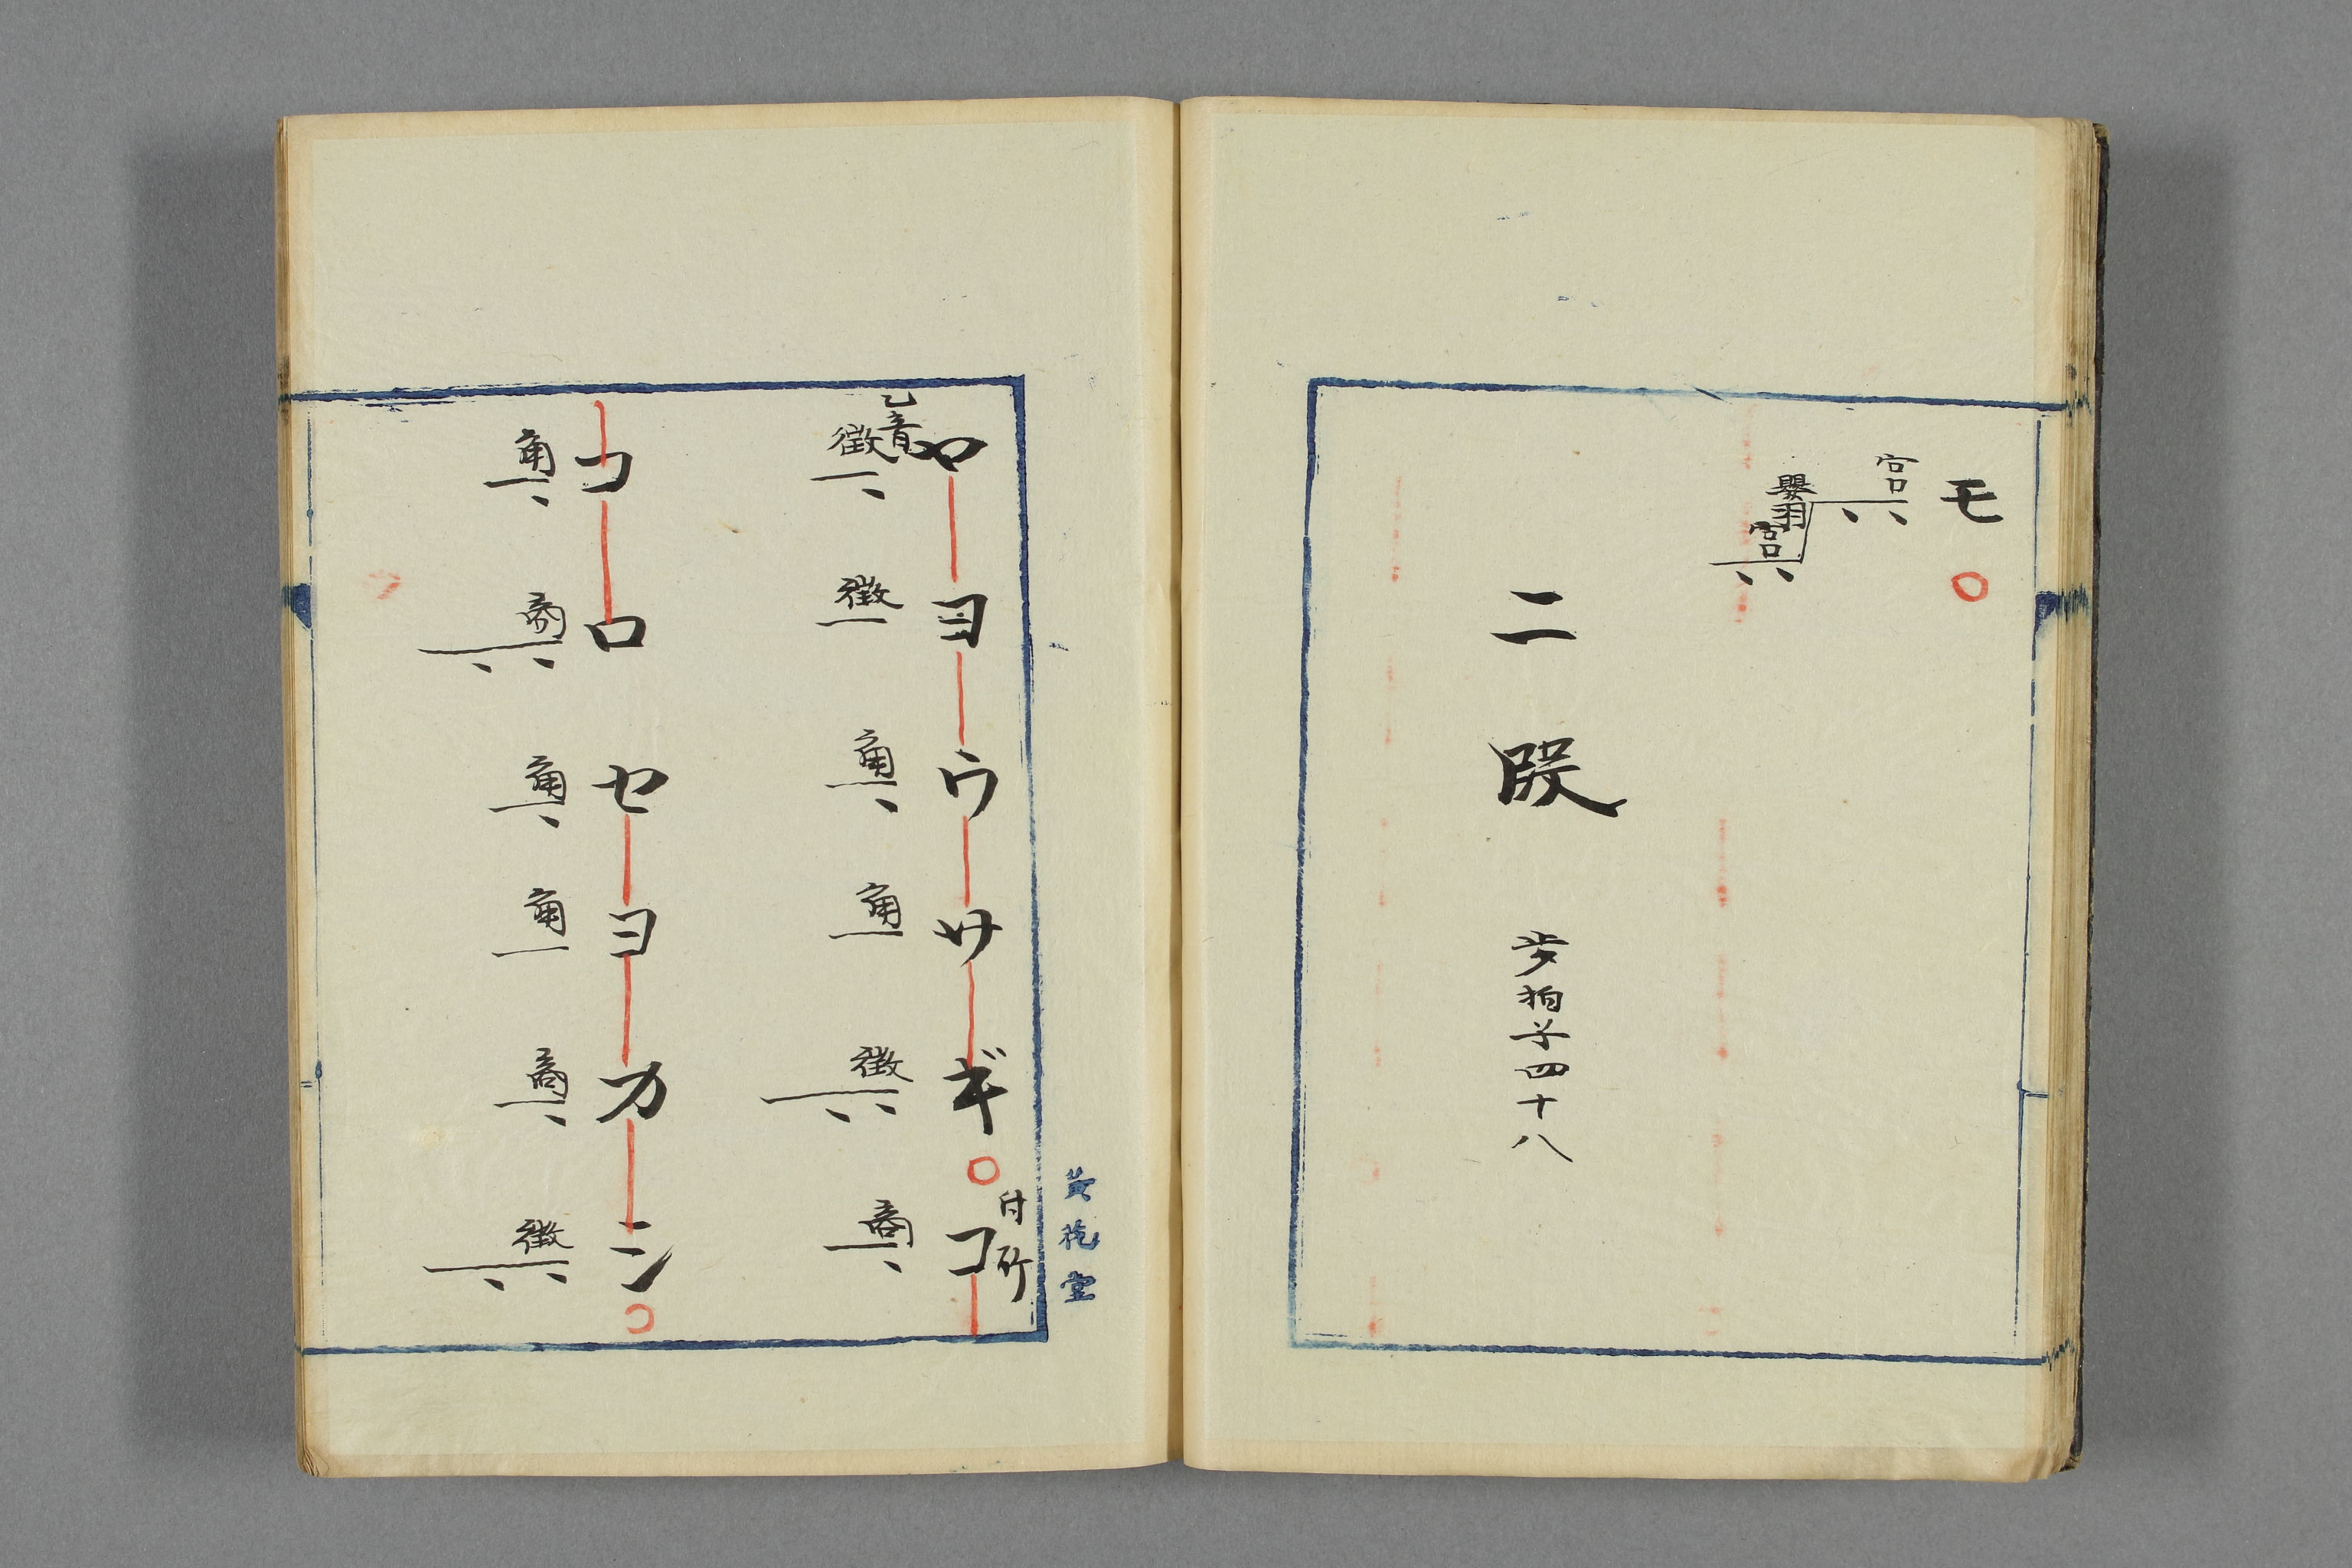 モ
宮
嬰羽
宮
二段 歩拍子四十八
付所
ヤヨウサギコ
乙音
徴 徴 角 角 徴 商
コロセヨカン
角 商 角 角 商 徴